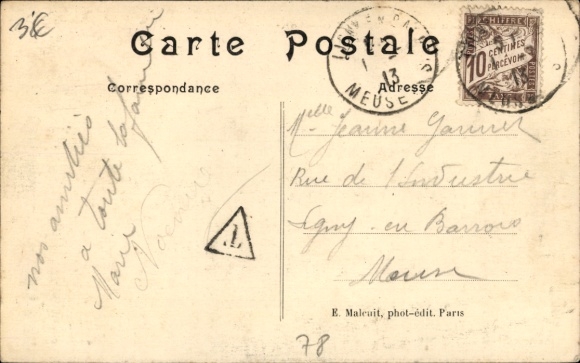 3€
Carte Postale
Correspondance
Adresse
LIGNY EN BARROIS
13
MEUSE
CHIFFRE
10 CENTIMES
A PERCEVOIR
nos amitiés
a toute la famille
Marie
T
Melle Jeanne
Rue de l'Industrie
Ligny-en Barrois
Meuse
E. Malcuit, phot-édit. Paris
78